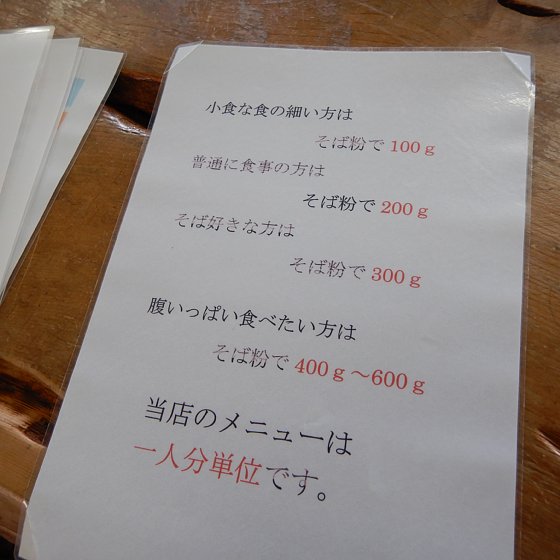 小食な食の細い方は
そば粉で 100ｇ
普通に食事の方は
そば粉で 200ｇ
そば好きな方は
そば粉で 300ｇ
腹いっぱい食べたい方は
そば粉で 400ｇ～600ｇ
当店のメニューは
一人分単位です。